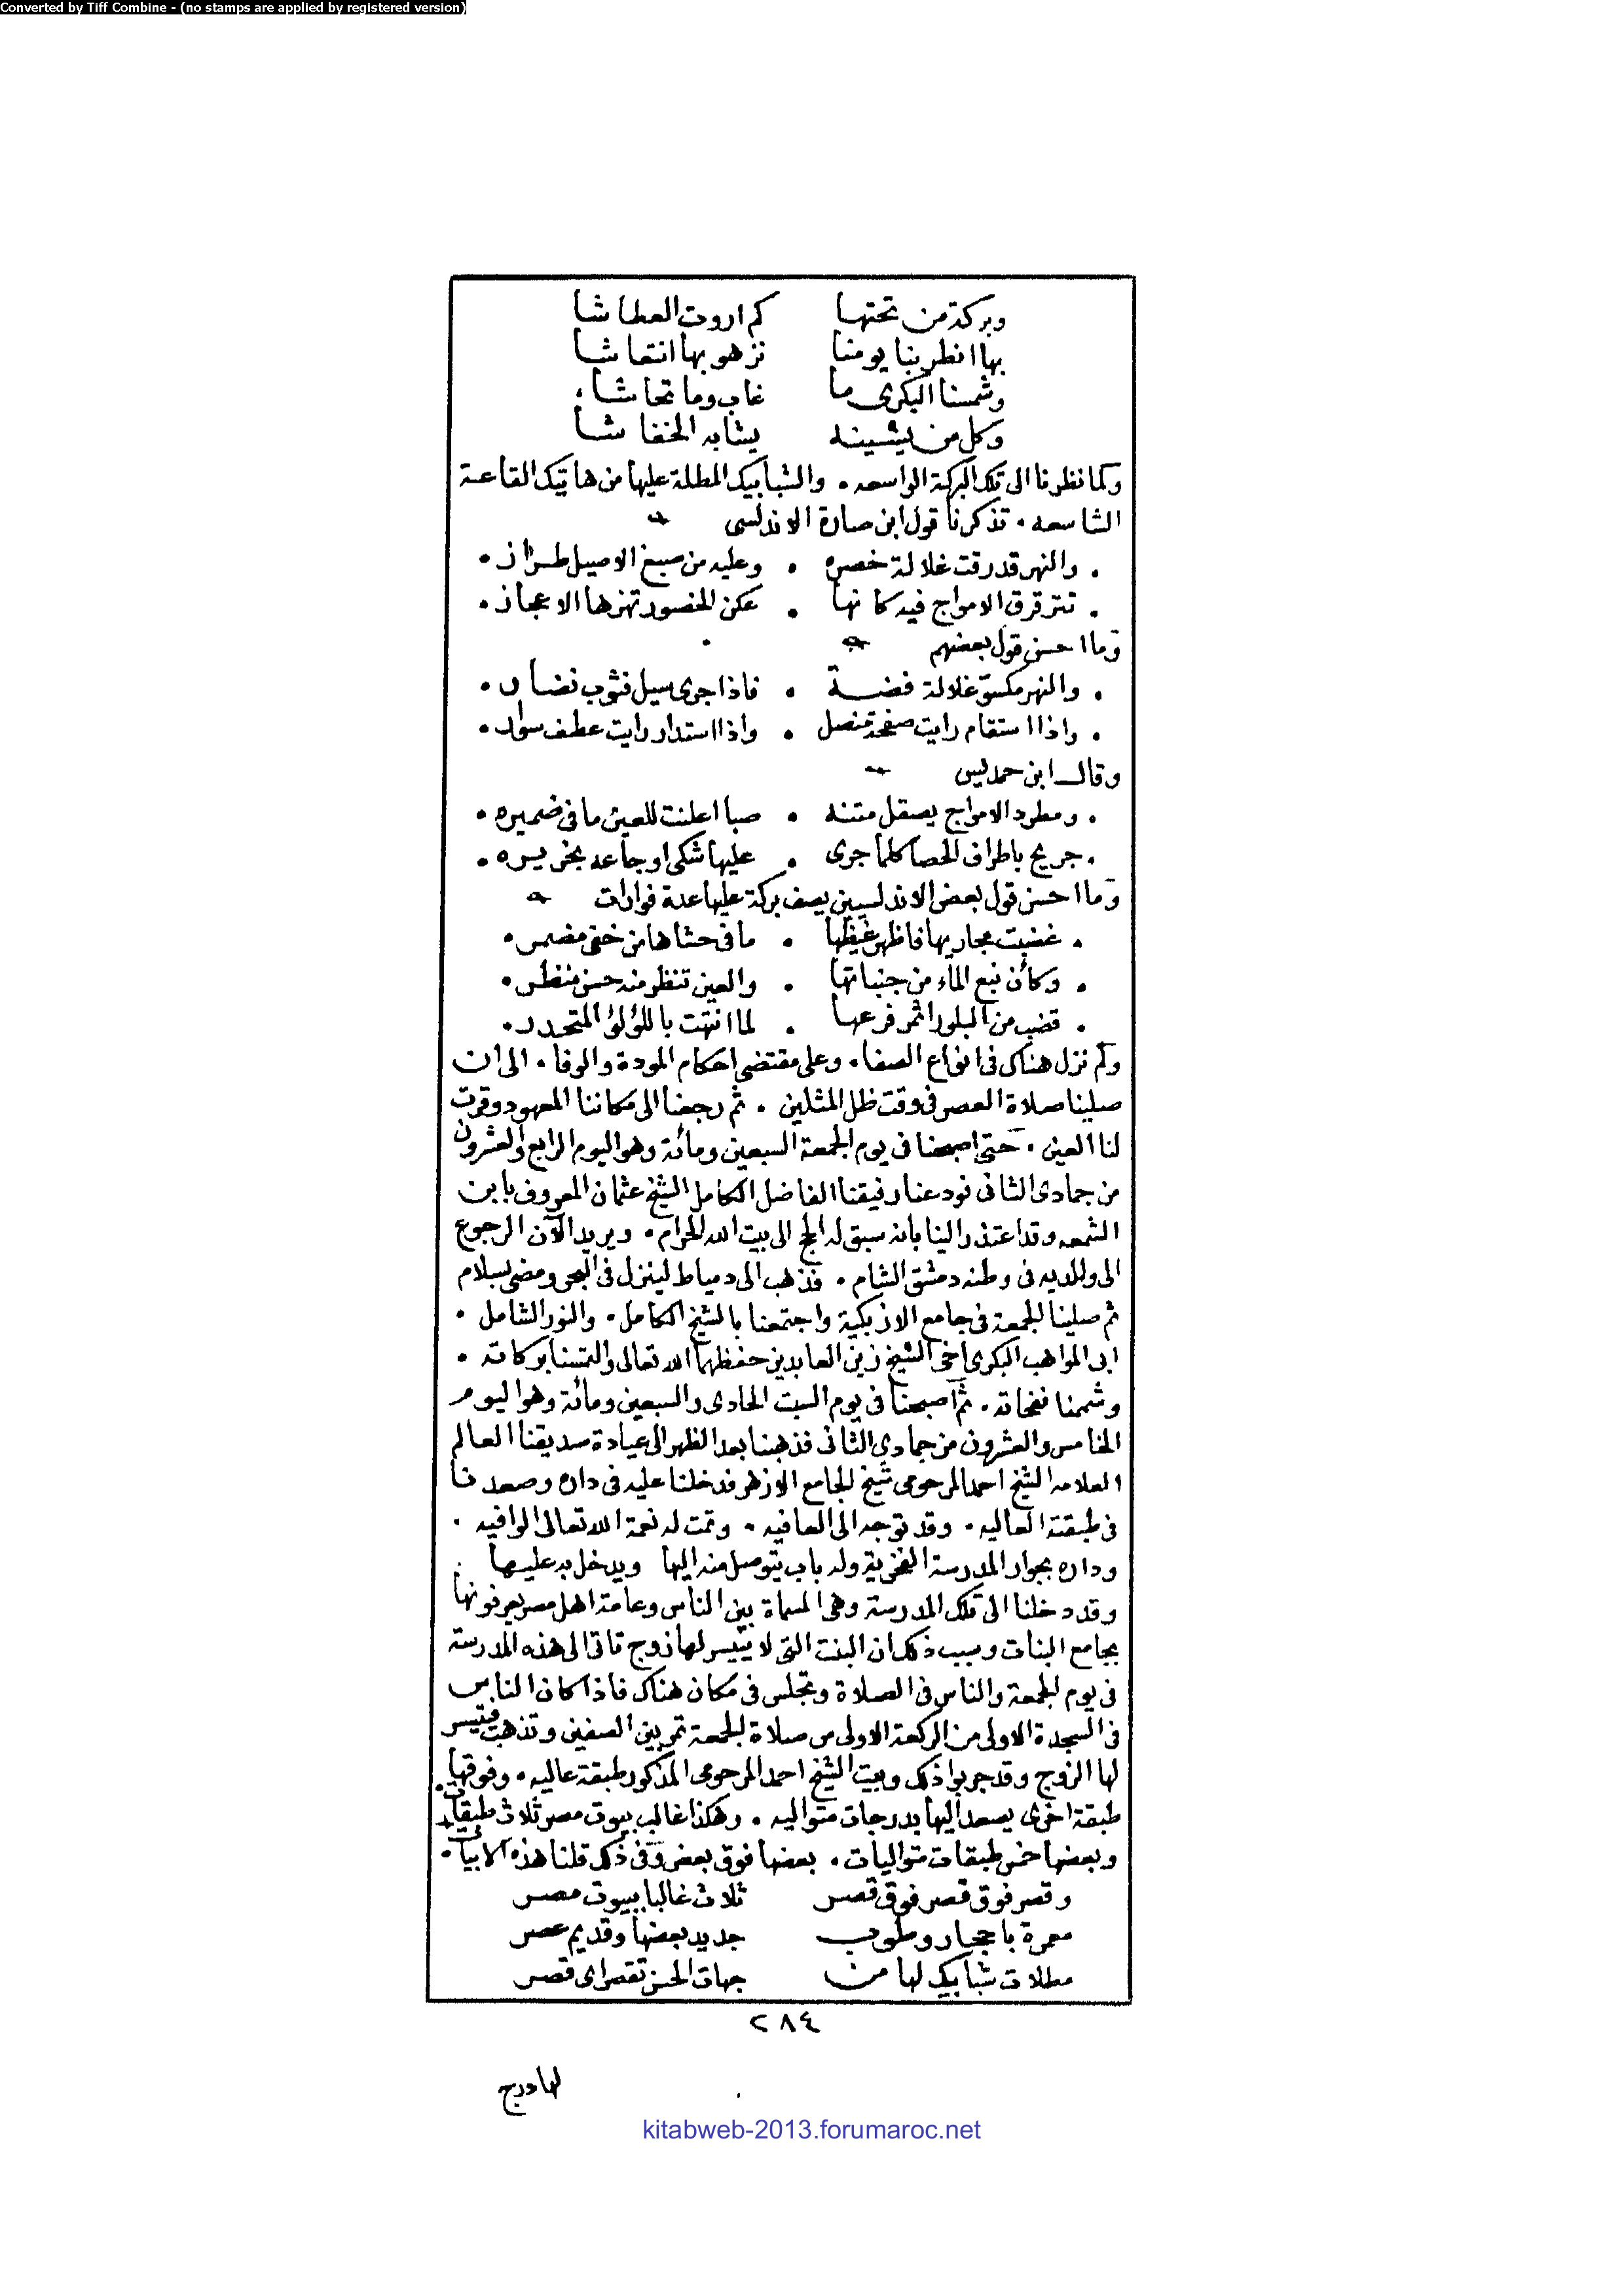 Converted by Tiff Combine - (no stamps are applied by registered version)
وبركة من تحتها كم اروت العطاشا
بها انطربنا يومنا نزهو بها انتعاشا
وشمسنا البكرى ما غاب وما تحاشا
وكل من يشينه يشابه الخفاشا
وكما نظرنا الى تلك البركة الواسعه . والشبابيك المطلة عليها من هاتيك القاعة
الشاسعه . تذكرنا قول ابن صارة الاندلسى
. والنهر قد رقت غلالة خصره . وعليه من صبغ الاصيل طراز .
. تترقرق الامواج فيه كانها . عكن الخصور تهزها الاعجاز .
وما احسن قول بعضهم
. والنهر مكسو غلالة فضة . فاذا جرى سيل فثوب نضار .
. واذا استقام رايت صفحة منصل . واذا استدار رايت عطف سوار .
وقال ابن حمديس
. ومطرد الامواج يصقل متنه . صبا اعلنت للعين ما فى ضميره .
. جريح باطراف الحصا كلما جرى . عليها شكى اوجاعه بخريره .
وما احسن قول بعض الاندلسيين يصف بركة عليها عدة فوارات
. غضبت مجاريها فاظهر غيظها . ما فى حشاها من خفى مضمر .
. وكأن نبع الماء من جنباتها . والعين تنظر منه حسن منظر .
. قضب من البلور اثمر فرعها . لما انتهت باللؤلؤ المتحدر .
ولم نزل هناك فى انواع الصفا . وعلى مقتضى احكام المودة والوفا . الى ان
صلينا صلاة العصر فى وقت ظل المثلين . ثم رجعنا الى مكاننا المعهود وقرت
لنا العين . حتى اصبحنا فى يوم الجمعة السبعين ومائة وهو اليوم الرابع والعشرون
من جمادى الثانى فودعنا رفيقنا الفاضل الكامل الشيخ عثمان المعروف بابن
الشمعه وقد اعتذر الينا بانه سبق له الحج الى بيت الله الحرام . ويريد الآن الرجوع
الى والديه فى وطنه دمشق الشام . فذهب الى دمياط لينزل فى البحر ومضى بسلام
ثم صلينا الجمعة فى جامع الازبكية واجتمعنا بالشيخ الكامل . والنور الشامل .
ابى المواهب البكرى اخى الشيخ زين العابدين حفظهما الله تعالى والتمسنا بركاته .
وشممنا نفحاته . ثم اصبحنا فى يوم السبت الحادى والسبعين ومائة وهو اليوم
الخامس والعشرون من جمادى الثانى فذهبنا بعد الظهر الى عيادة صديقنا العالم
العلامه الشيخ احمد المرحومى شيخ الجامع الازهر فدخلنا عليه فى داره وصعدنا
فى طبقته العاليه . وقد توجه الى العافيه . وتمت له نعمة الله تعالى الوافيه .
وداره بجوار المدرسة الفخرية وله باب يتوصل منه اليها ويدخل به عليها
وقد دخلنا الى تلك المدرسة وهى المسماة بين الناس وعامة اهل مصر يعرفونها
بجامع البنات وسبب ذلك ان البنت التى لا يتيسر لها زوج تاتى الى هذه المدرسة
فى يوم الجمعة والناس فى الصلاة وتجلس فى مكان هناك فاذا كان الناس
فى السجدة الاولى من الركعة الاولى من صلاة الجمعة تمر بين الصفين وتذهب فتيسر
لها الزوج وقد جربوا ذلك وبيت الشيخ احمد المرحومى المذكور طبقة عاليه . وفوقها
طبقة اخرى يصعد اليها بدرجات متواليه . وهكذا غالب بيوت مصر ثلاث طبقات
وبعضها خمس طبقات متواليات . بعضها فوق بعض وفى ذلك قلنا هذه الابيات .
وقصر فوق قصر فوق قصر ثلاث غالبا ببيوت مصر
معمرة باحجار وطوب جديد بعضها وقديم عصر
مطلات شبابيك لها من جهات الحسن تقصر اى قصر
٢٨٤
لها درج
kitabweb-2013.forumaroc.net